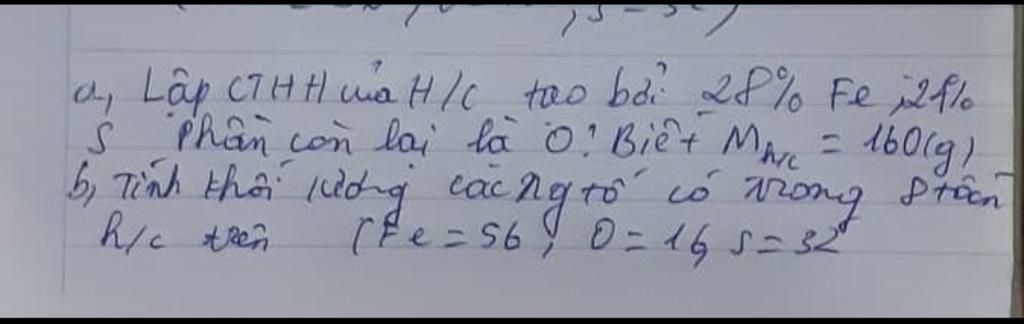 a, Lập CTHH của H/C tạo bởi 28% Fe, 24%
S phần còn lại là O? Biết M H/C = 160(g)
b, Tính khối lượng các ng tố có trong 8 tấn
h/c trên (Fe = 56, O = 16, S = 32